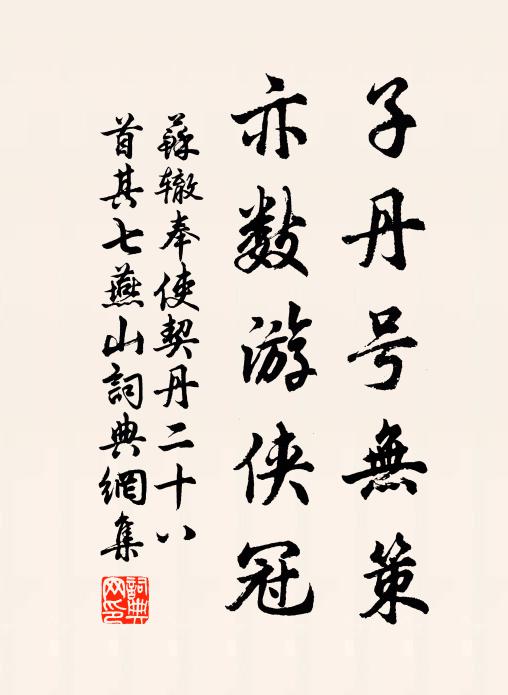 子丹号無策
亦数游侠冠
蘇辙奉使契丹二十八
首其七燕山詞典網集
詞典网印